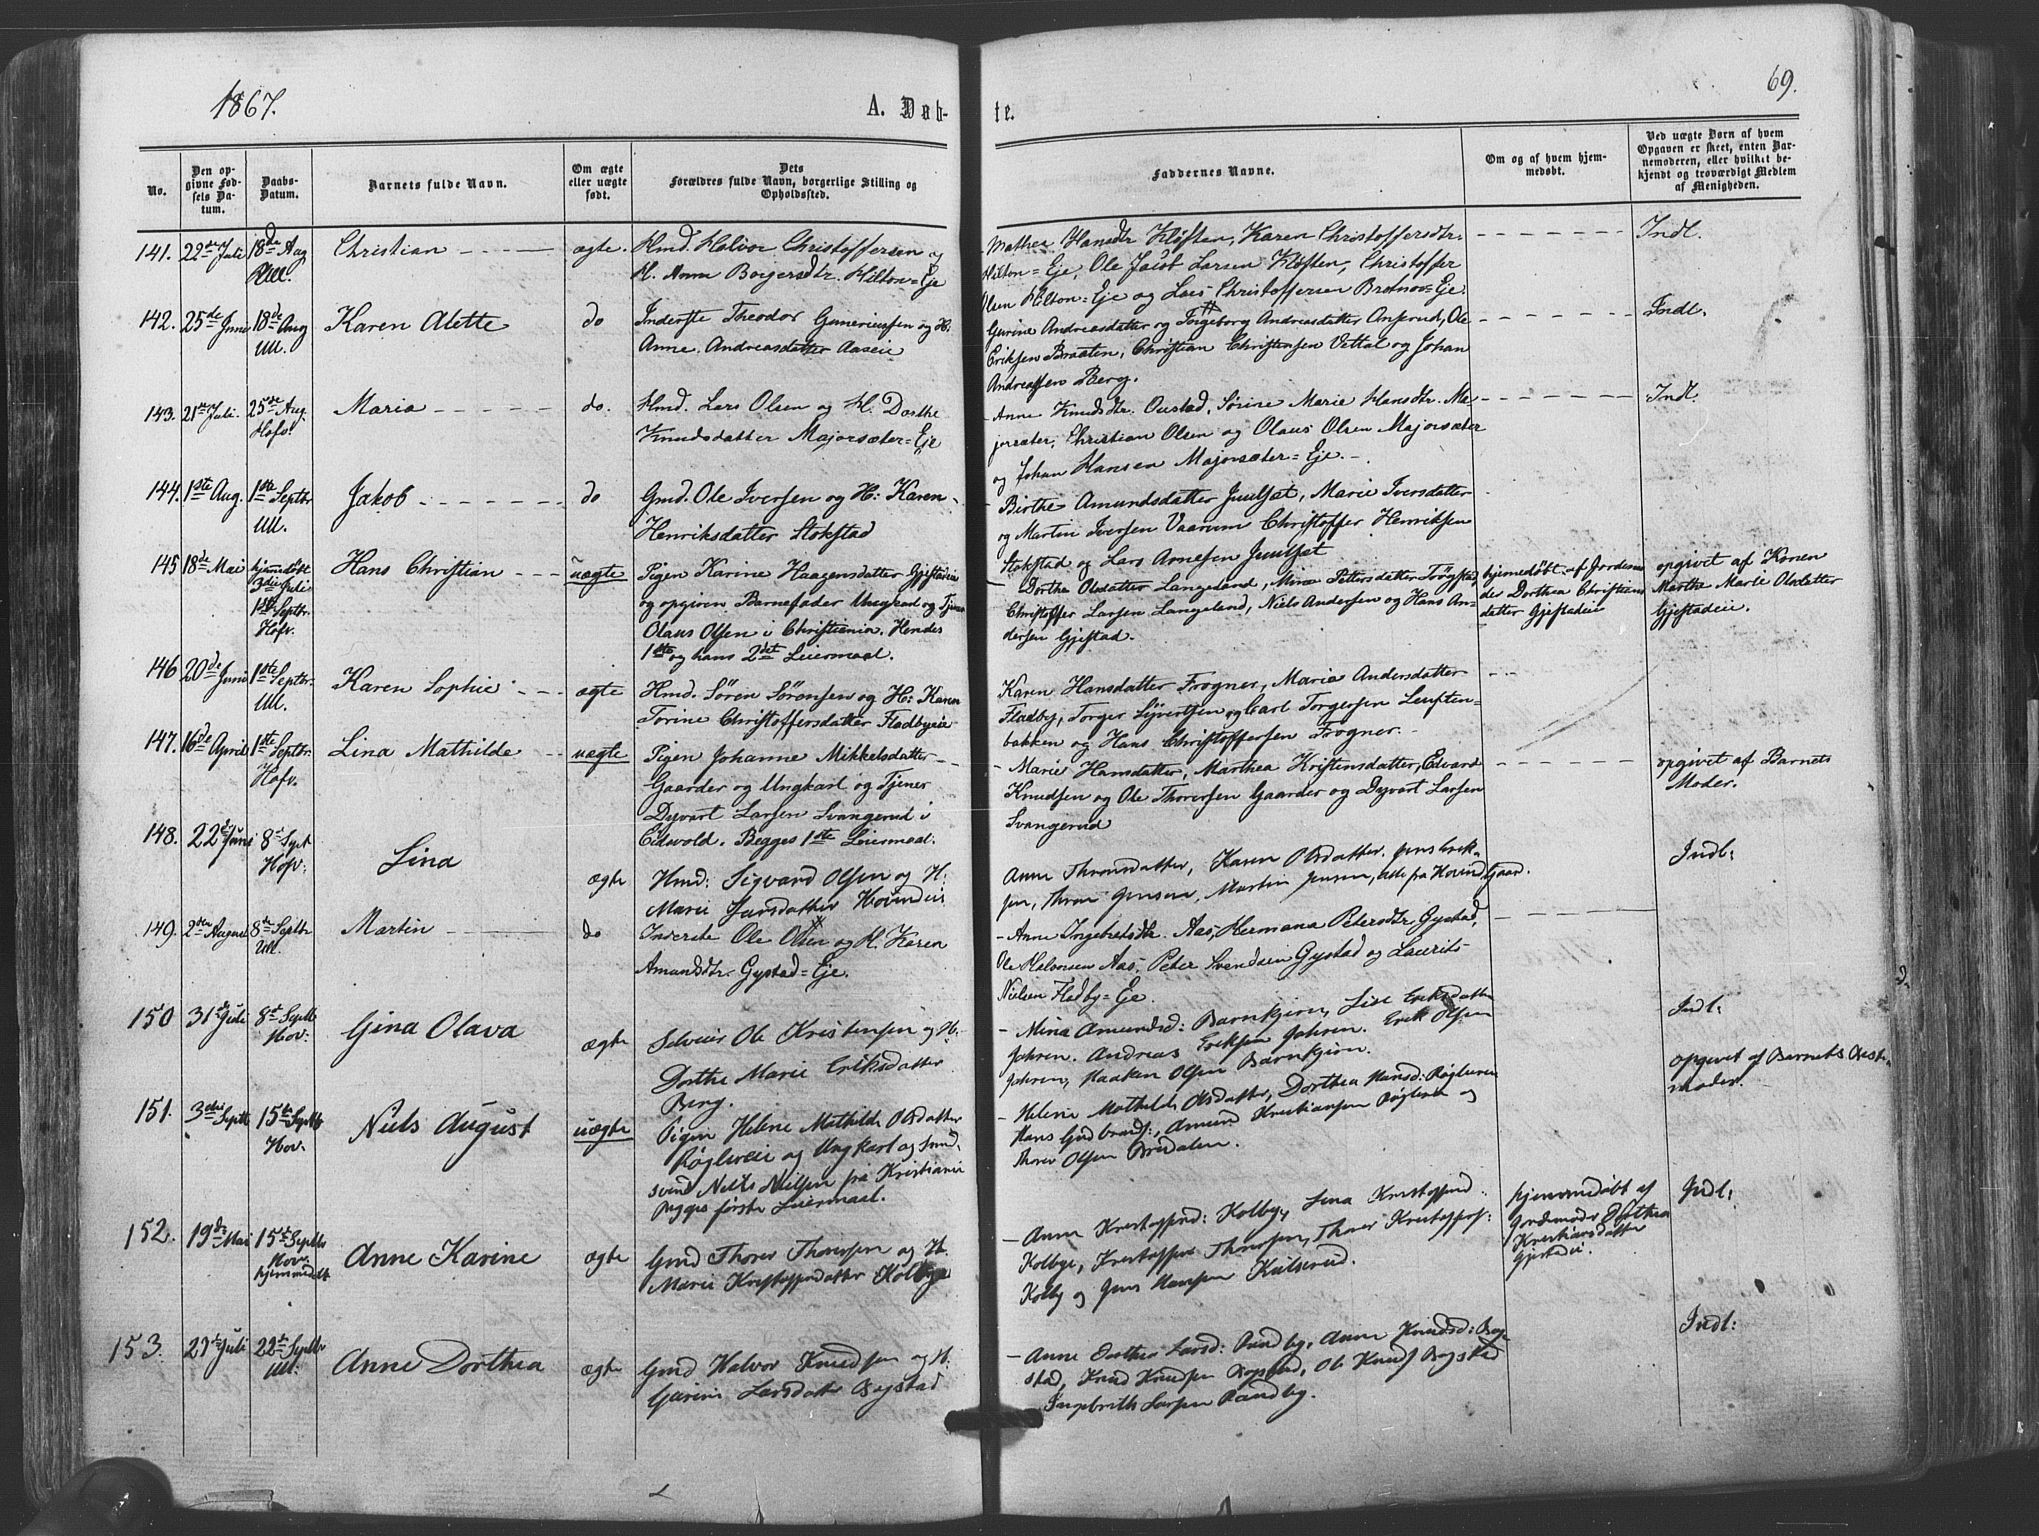 1867.
A. Døb-
te.
69.
No.
Den op-
givne Fød-
sels Da-
tum.
Daabs-
Datum.
Barnets fulde Navn.
Om ægte
eller uægte
født.
Dets
Forældres fulde Navn, borgerlige Stilling og
Opholdssted.
Faddernes Navne.
Om og af hvem hjem-
medøbt.
Ved uægte Børn af hvem
Opgaven er skeet, enten Bar-
nemoderen, eller hvilket be-
kjendt og troværdigt Medlem
af Menigheden.
141. 22de Juli 18de Aug Ull. Christian ægte.
Hmd. Halvor Christoffersen og
H. Anne Borgersdtr. Hilton=Eje
Mathea Hansdtr Kløften, Karen Christoffersdtr.
Hilton=Eje, Ole Jacob Larsen Kløften, Christoffer
Olsen Hilton=Eje og Lars Christoffersen Brotnov=Eje.
Indl.
142. 25de Juni 18de Aug Ull. Karen Alette do
Inderste Theodor Guneriussen og H:
Anne Andreasdatter Aaseie
Gurine Andreasdatter og Ingeborg Andreasdatter Anserud, Ole
Eriksen Braaten, Christian Christensen Vettal og Johan
Andreassen Berg.
Indl.
143. 21de Juli. 25de Aug. Hofv. Maria do.
Hmd. Lars Olsen og H. Dorthe
Knudsdatter Majorsæter=Eje
Anne Knudsdtr. Oustad, Sørine Marie Hansdtr. Ma-
jorsæter, Christian Olsen og Olaus Olsen Majorsæter
og Johan Hansen Majorsæter=Eje.
Indl.
144. 1ste Aug. 1ste Septbr Ull. Jakob do
Gmd. Ole Iversen og H: Karen
Henriksdatter Stokstad
Birthe Amundsdatter Juulsæt, Marie Iversdatter
og Martin Iversen Vaarum Christoffer Henriksen
Stokstad og Lars Arnesen Juulsæt
145 18de Mai hjemmedøbt 3die Juli 1ste Septbr. Hofv. Hans Christian uægte
Pigen Karine Haagensdatter Gjestadeie
og opgiven Barnefader Ungkarl og Tjener
Olaus Olsen i Christiania. Hendes
1ste og hans 2det Leiermaal.
Dorthe Olsdatter Langeland, Mina Pettersdatter Trøgstad,
Christoffer Larsen Langeland, Niels Andersen og Hans An-
dersen Gjestad.
hjemedøbt af Jordemo-
der Dorthea Christians-
datter Gjestadeie
opgivet af Konen
Marthe Marie Olsdatter
Gjestadeie.
146 20de Juni 1ste Septbr. Ull. Karen Sophie ægte
Hmd. Sören Sörensen og H: Karen
Torine Christoffersdatter Fladbyeie
Karen Hansdatter Frogner, Maria Andersdatter
Fladby, Torger Syvertsen og Carl Torgersen Lauften-
bakken og Hans Christoffersen Frogner.
147. 16de April 1ste Septbr. Hofv. Lina Mathilde uægte
Pigen Johanne Mikkelsdatter
Gaarder og Ungkarl og Tjener
Dyvart Larsen Svangerud i
Eidsvold. Begges 1ste Leiermaal.
Marie Hansdatter, Marthea Kristensdatter, Edvard
Knudsen og Ole Thoresen Gaarder og Dyvart Larsen
Svangerud
opgivet af Barnets
Moder.
148. 22de Juni 8de Sept Hofv: Lina ægte
Hmd: Sigvard Olsen og H:
Marie Larsdatter Hovindeie
Anne Thronsdatter, Karen Olsdatter, Jens Erik-
sen, Thron Jensen, Martin Jensen, alle fra Hovind Gaard.
Indl:
149. 2den August 8de Septbr Ull. Martin do
Inderste Ole Olsen og H. Karen
Amundsdtr. Gystad=Eje.
Anne Ingebretsdtr. Aas, Hermana Petersdtr. Gystad,
Ole Halvorsen Aas, Peter Svendsen Gystad og Laurits
Nielsen Fladby=Eje.
150 31te Juli 8de Septbr Hov: Gina Olava ægte
Selveier Ole Kristensen og H:
Dorthe Marie Eriksdatter
Berg.
Mina Amundsd: Barnkjern, Lise Eriksdatter
Jahren. Andreas Eriksen Jahren. Erik Olsen
Jahren, Haaken Olsen Barnkjern.
Indl:
151. 3die Septb 15de Septb Hov. Niels August uægte
Pigen Helene Mathilde Olsdatter
Røglereie og Ungkarl og Smed-
svend Niels Nilsen fra Kristiania
begges første Leiermaal.
Helene Mathilde Olsdatter, Dorthea Hansd: Røglereie
Hans Gudbrands:, Amund Kristiansen Røglereie og
Thorer Olsen Bredalen.
opgivet af Barnets Beste-
moder.
152. 19de Mai 15de Septbr Hov. hjemmedøbt Anne Karine ægte
Gmd Thorer Thoresen og H.
Marie Kristoffersdatter Kolbye
Anne Kristoffersd: Kolby, Lena Kristoffersd:
Kolbye, Kristoffer Thoresen, Thorer Kristoffers:
Kolby og Jens Hansen Kulserud.
hjemmedøbt af
Jordemoder Dorthea
Kristiansdatter
Gjestadeie.
Indl:
153. 27de Juli 22de Septbr Ull: Anne Dorthea ægte
Gmd Halvor Knudsen og H.
Gurine Larsdatter Bogstad
Anne Dorthea Larsd: Randby, Anne Knudsd: Bog-
stad, Knud Knudsen Bogstad, Ole Knuds: Bogstad
Ingebrith Larsen Randby.
Indl: